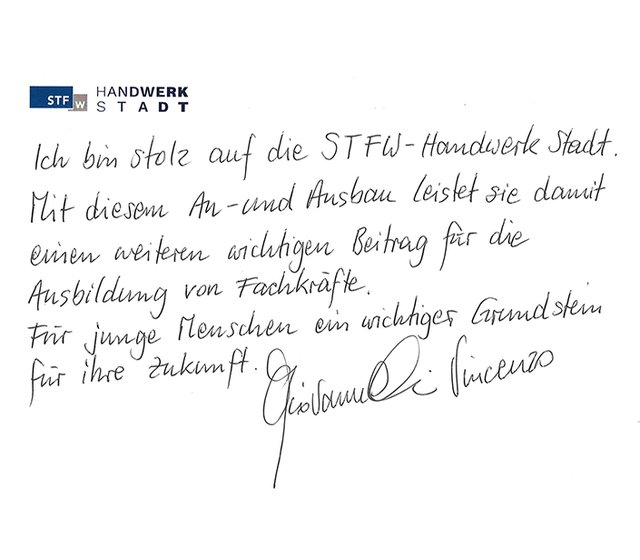 STFW HANDWERK
STADT
Ich bin stolz auf die STFW-Handwerk Stadt.
Mit diesem An- und Ausbau leistet sie damit
einen weiteren wichtigen Beitrag für die
Ausbildung von Fachkräfte.
Für junge Menschen ein wichtiger Grundstein
für ihre Zukunft.
Giovanni Di Vincenzo